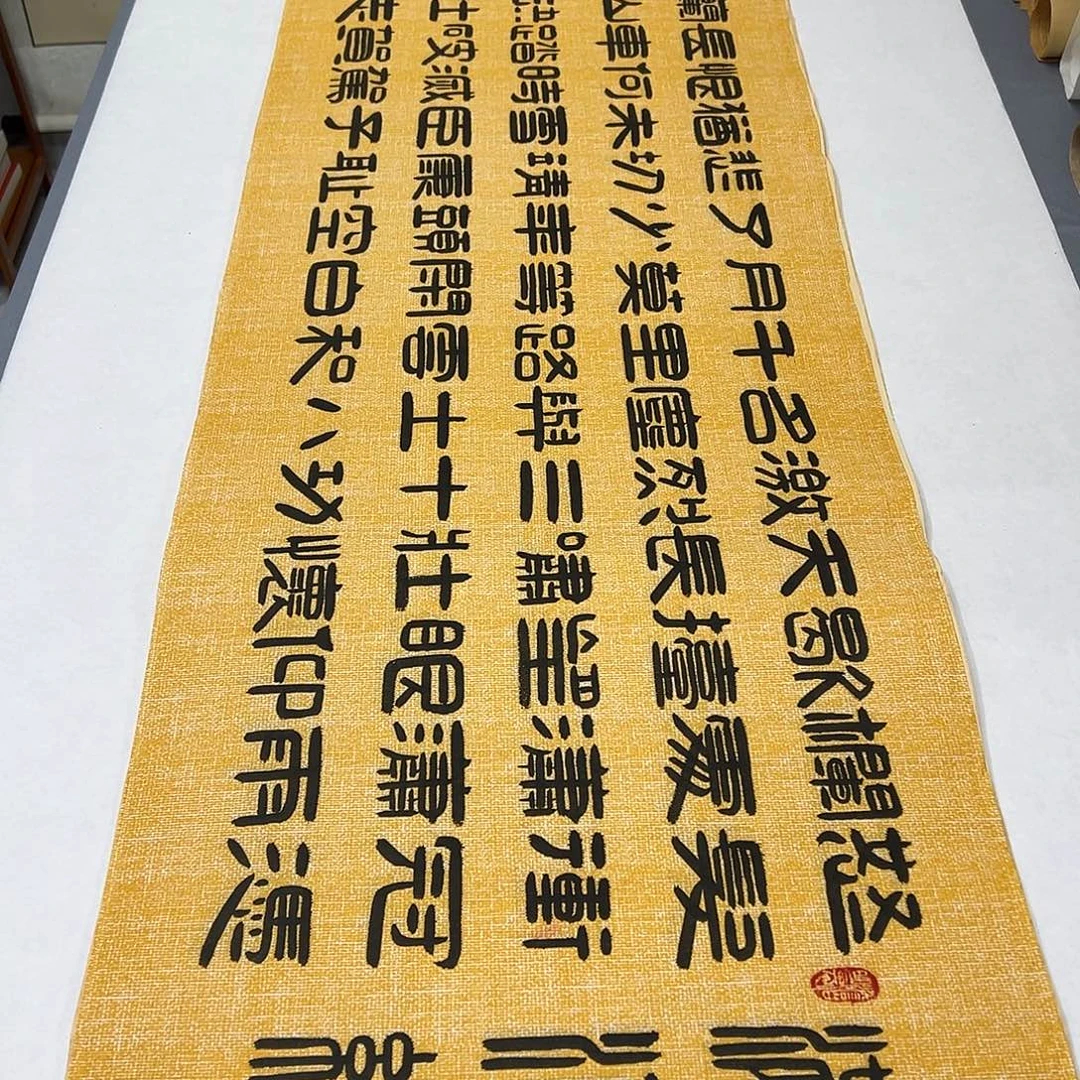 怒髮衝冠憑
欄處瀟瀟雨
歇擡望眼仰
天長嘯壯懷
激烈三十功
名塵與土八
千里路雲和
月莫等閒白
了少年頭空
悲切靖康恥
猶未雪臣子
恨何時滅駕
長車踏破賀
蘭山缺壯志